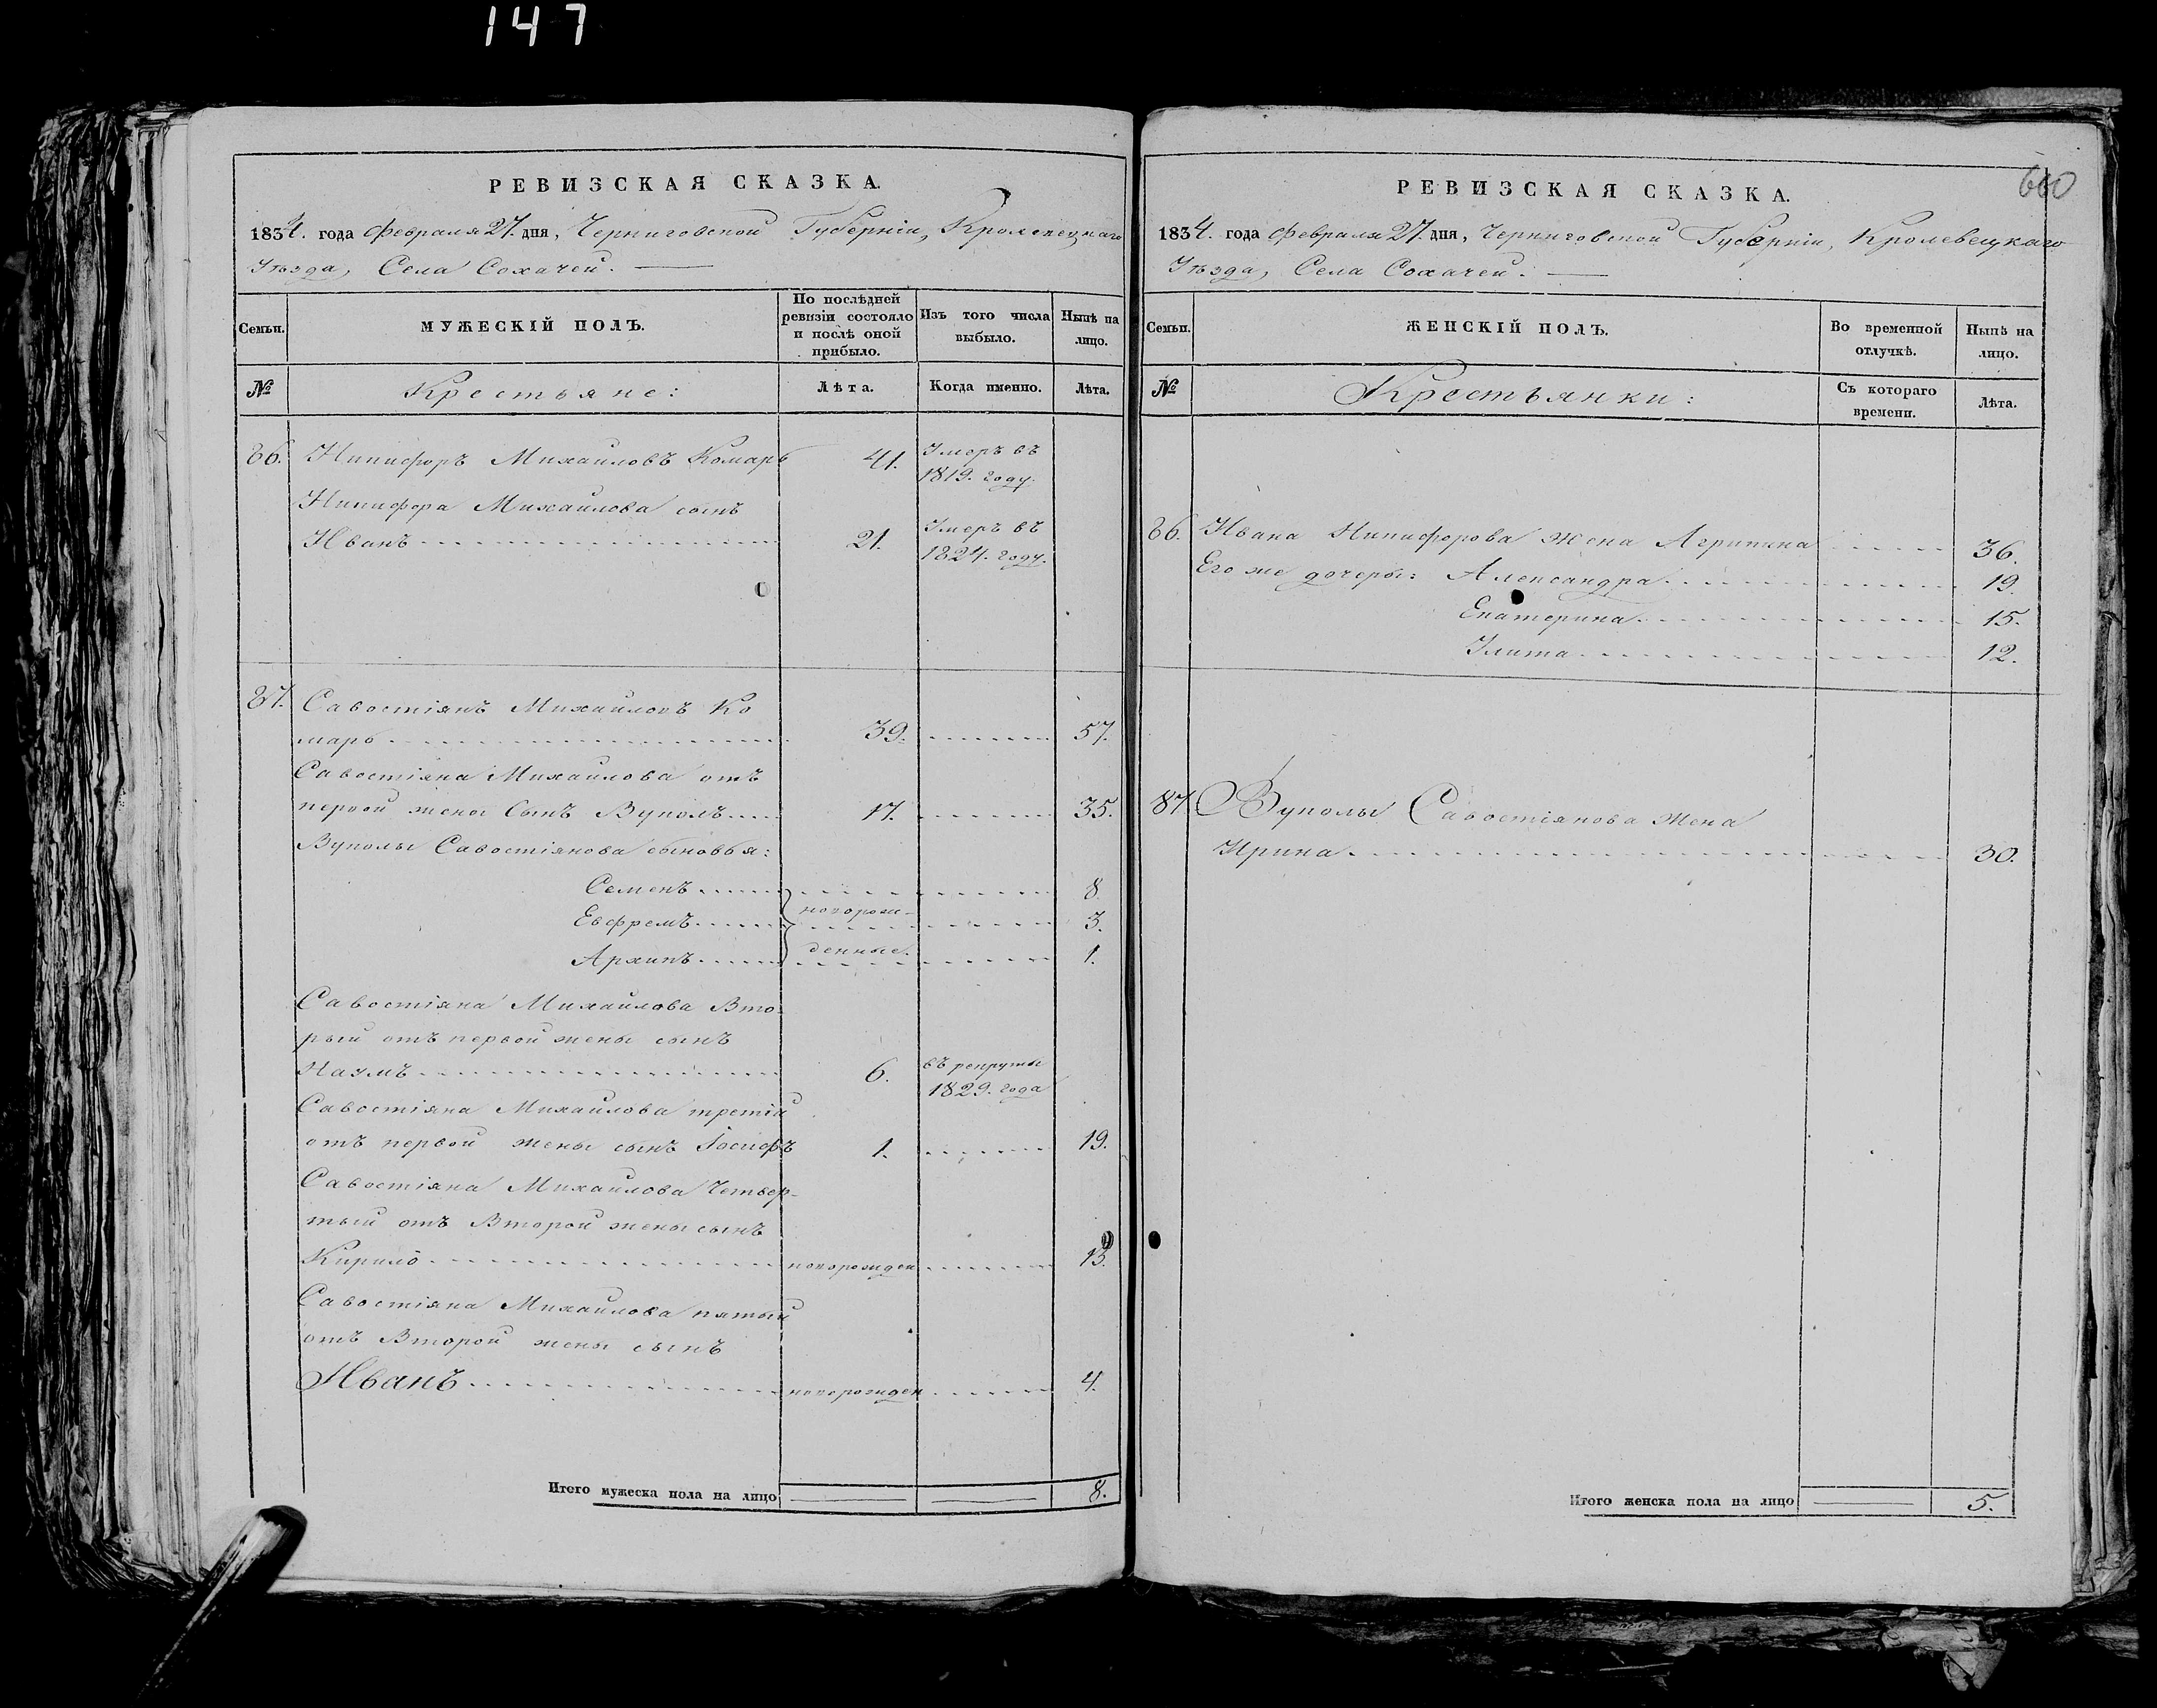 147
РЕВИЗСКАЯ СКАЗКА.
1834. года Февраля 27. дня, Черниговской Губерніи, Кролевецкаго
Уѣзда, Села Сохачей.
Семьи.
МУЖЕСКІЙ ПОЛЪ.
По послѣдней
ревизіи состояло
и послѣ оной
прибыло.
Изъ того числа
выбыло.
Нынѣ на
лицо.
№
Крестьяне:
Лѣта.
Когда именно.
Лѣта.
86. Никифоръ Михаиловъ Комаръ 41. Умеръ въ
1819. году.
Никифора Михаилова сынъ
Иванъ 21. Умеръ въ
1824. году.
87. Савостіянъ Михаиловъ Ко
маръ 39. 57.
Савостіяна Михаилова отъ
первой жены Сынъ Вуколъ 17. 35.
Вуколы Савостіянова сыновья:
Семенъ 8.
новорож-
Евфремъ 3.
денные.
Архипъ 1.
Савостіяна Михаилова Вто-
рый отъ первой жены сынъ
Наумъ 6. въ рекруты
1829. года
Савостіяна Михаилова третій
отъ первой жены сынъ Іосифъ 1. 19.
Савостіяна Михаилова Четвер-
тый отъ Второй жены сынъ
Кирило новорожден 13.
Савостіяна Михаилова пятый
отъ Второй жены сынъ
Иванъ новорожден 4.
Итого мужеска пола на лицо 8.
660
РЕВИЗСКАЯ СКАЗКА.
1834. года Февраля 27. дня, Черниговской Губерніи, Кролевецкаго
Уѣзда, Села Сохачей.
Семьи.
ЖЕНСКІЙ ПОЛЪ.
Во временной
отлучкѣ.
Нынѣ на
лицо.
№
Крестьянки:
Съ котораго
времени.
Лѣта.
86. Ивана Никифорова жена Агрипина 36.
Его же дочеры: Александра 19.
Екатерина 15.
Улита 12.
87. Вуколы Савостіянова жена
Ирина 30.
Итого женска пола на лицо 5.